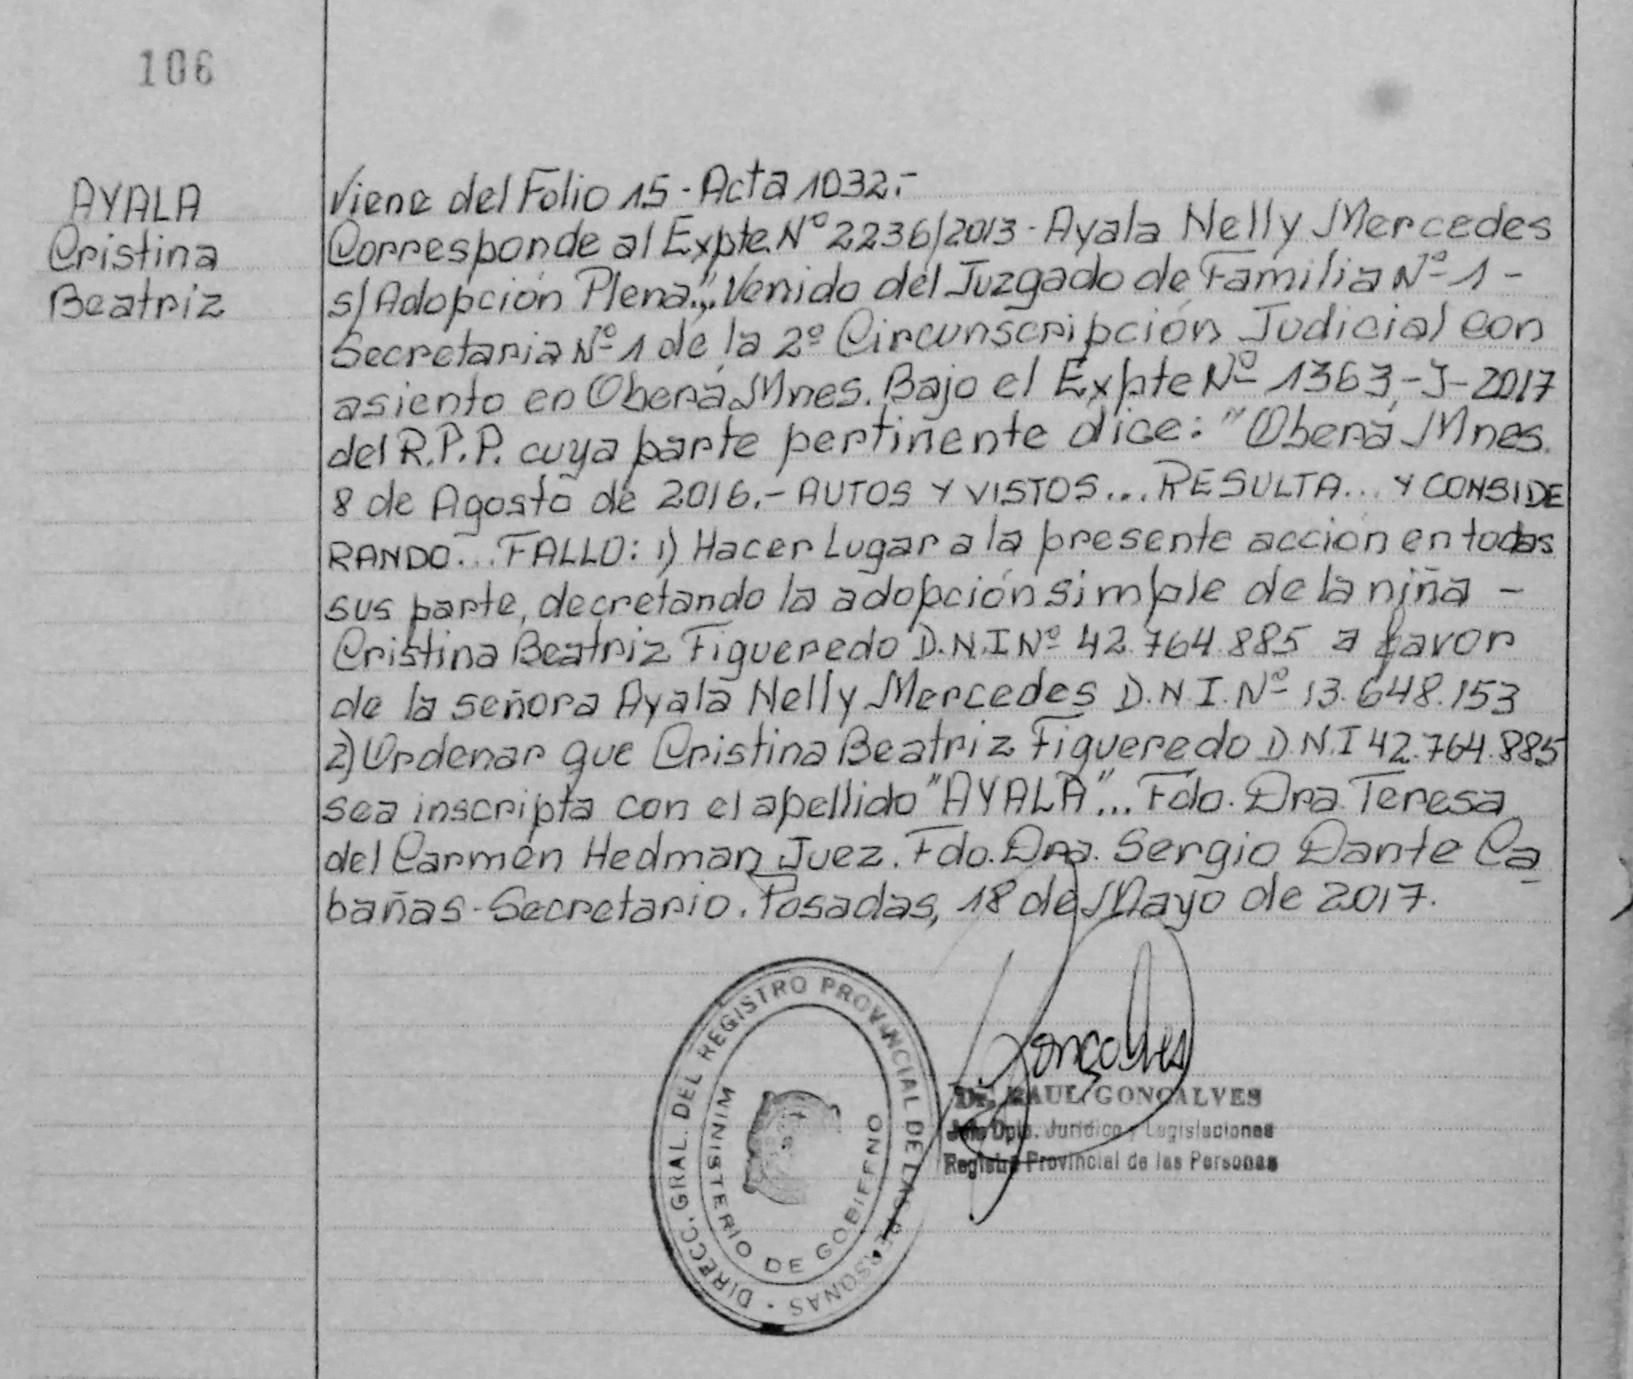 106
AYALA
Cristina
Beatriz
Viene del Folio 15 - Acta 1032.-
Corresponde al Expte. Nº 2236/2013 - Ayala Nelly Mercedes
s/ Adopción Plena.", Venido del Juzgado de Familia Nº 1 -
Secretaria Nº 1 de la 2º Circunscripción Judicial con
asiento en Oberá Mnes. Bajo el Expte Nº 1363-J-2017
del R.P.P. cuya parte pertinente dice: "Oberá Mnes.
8 de Agosto de 2016.- AUTOS Y VISTOS... RESULTA... Y CONSIDE
RANDO... FALLO: 1) Hacer Lugar a la presente acción en todas
sus parte, decretando la adopción simple de la niña -
Cristina Beatriz Figueredo D.N.I Nº 42.764.885 a favor
de la señora Ayala Nelly Mercedes D.N.I. Nº 13.648.153
2) Ordenar que Cristina Beatriz Figueredo D.N.I 42.764.885
sea inscripta con el apellido "AYALA"... Fdo. Dra. Teresa
del Carmen Hedman Juez. Fdo. Dra. Sergio Dante Ca
bañas - Secretario. Posadas, 18 de Mayo de 2017.
DIRECC. GRAL. DEL REGISTRO PROVINCIAL DE LAS PERSONAS
MINISTERIO DE GOBIERNO
Goncalves
Dr. RAUL GONCALVES
Jefe Dpto. Jurídico y Legislaciones
Registro Provincial de las Personas